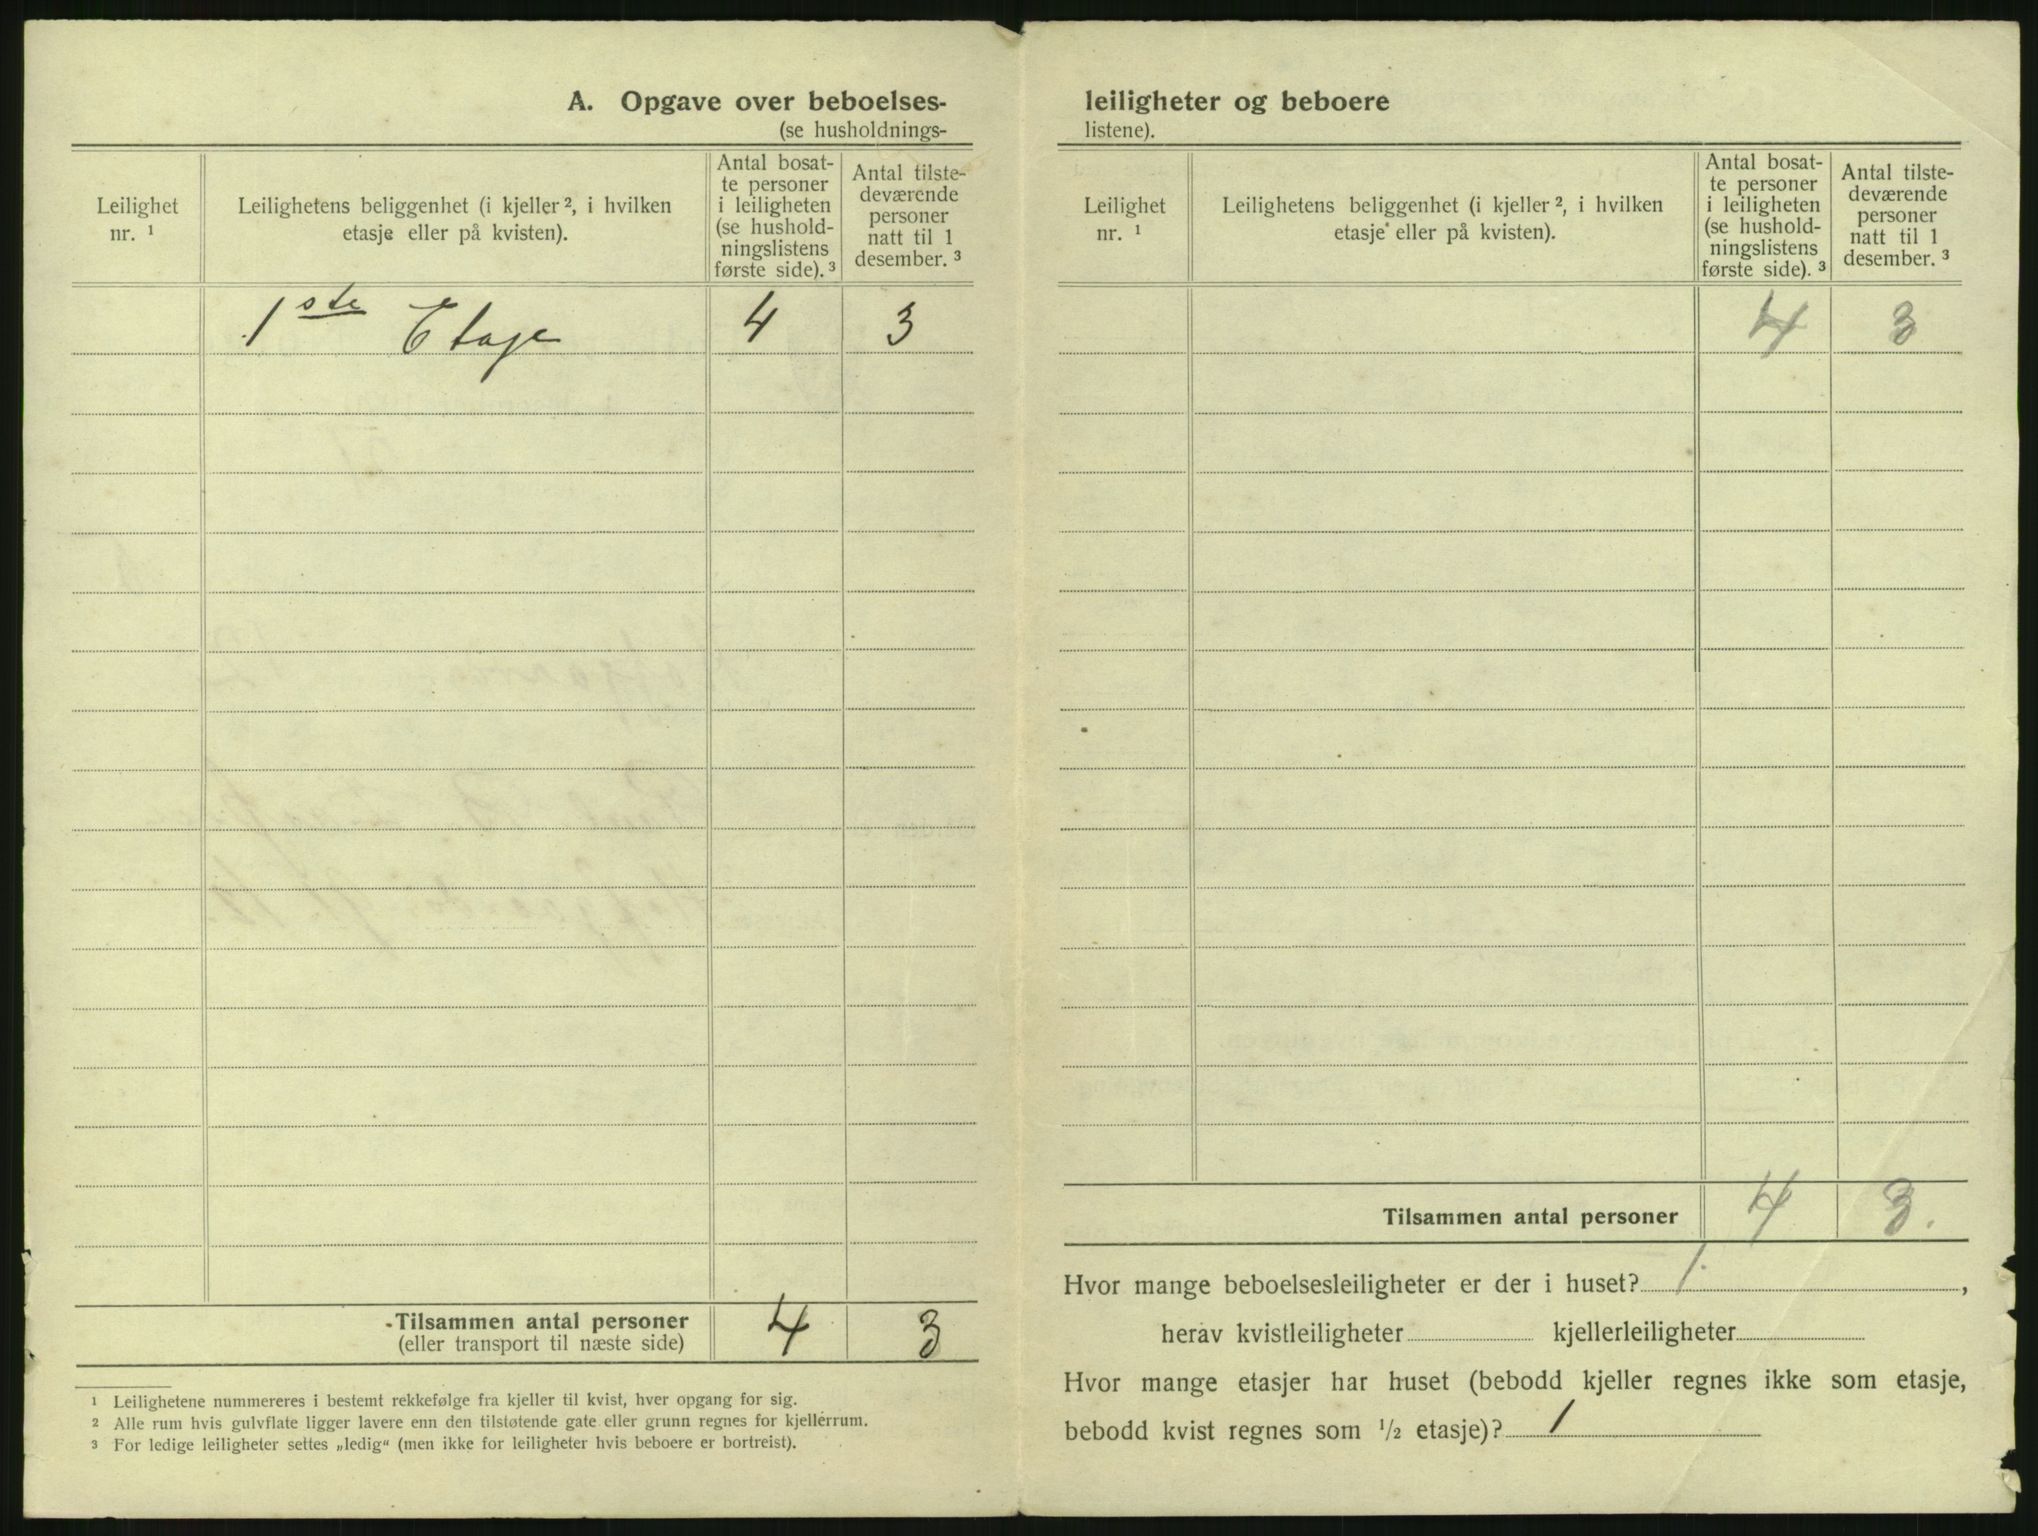 A. Opgave over beboelses-
(se husholdnings-
Leilighet
nr. ¹
Leilighetens beliggenhet (i kjeller ², i hvilken
etasje eller på kvisten).
Antal bosat-
te personer
i leiligheten
(se hushold-
ningslistens
første side). ³
Antal tilste-
deværende
personer
natt til 1
desember. ³
1ste Etage 4 3
Tilsammen antal personer 4 3
(eller transport til næste side)
¹ Leilighetene nummereres i bestemt rekkefølge fra kjeller til kvist, hver opgang for sig.
² Alle rum hvis gulvflate ligger lavere enn den tilstøtende gate eller grunn regnes for kjellerrum.
³ For ledige leiligheter settes „ledig“ (men ikke for leiligheter hvis beboere er bortreist).
leiligheter og beboere
listene).
Leilighet
nr. ¹
Leilighetens beliggenhet (i kjeller ², i hvilken
etasje eller på kvisten).
Antal bosat-
te personer
i leiligheten
(se hushold-
ningslistens
første side). ³
Antal tilste-
deværende
personer
natt til 1
desember. ³
4 3
Tilsammen antal personer 4 3.
Hvor mange beboelsesleiligheter er der i huset? 1.,
herav kvistleiligheter kjellerleiligheter
Hvor mange etasjer har huset (bebodd kjeller regnes ikke som etasje,
bebodd kvist regnes som ½ etasje)? 1